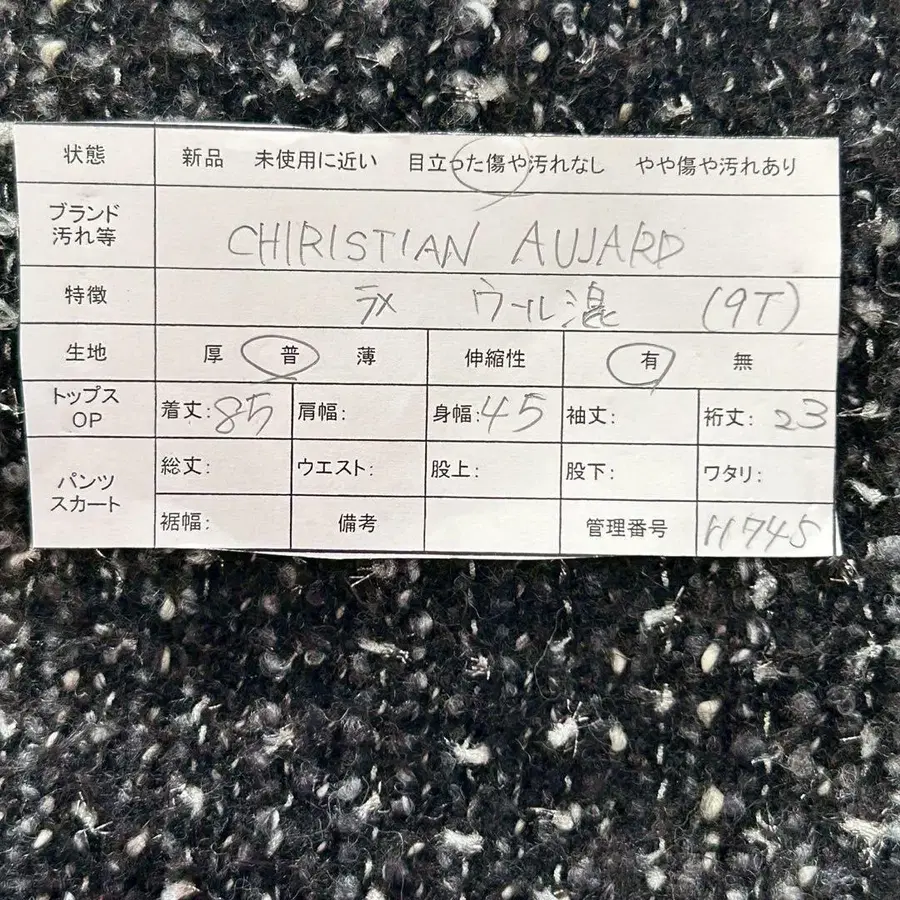 状態 新品 未使用に近い 目立った傷や汚れなし やや傷や汚れあり
ブランド
汚れ等
CHIRISTIAN AUJARD
特徴 ラメ ウール混 (9T)
生地 厚 普 薄 伸縮性 有 無
トップス
OP
着丈:85 肩幅: 身幅:45 袖丈: 裄丈:23
パンツ
スカート
総丈: ウエスト: 股上: 股下: ワタリ:
裾幅: 備考 管理番号 H745